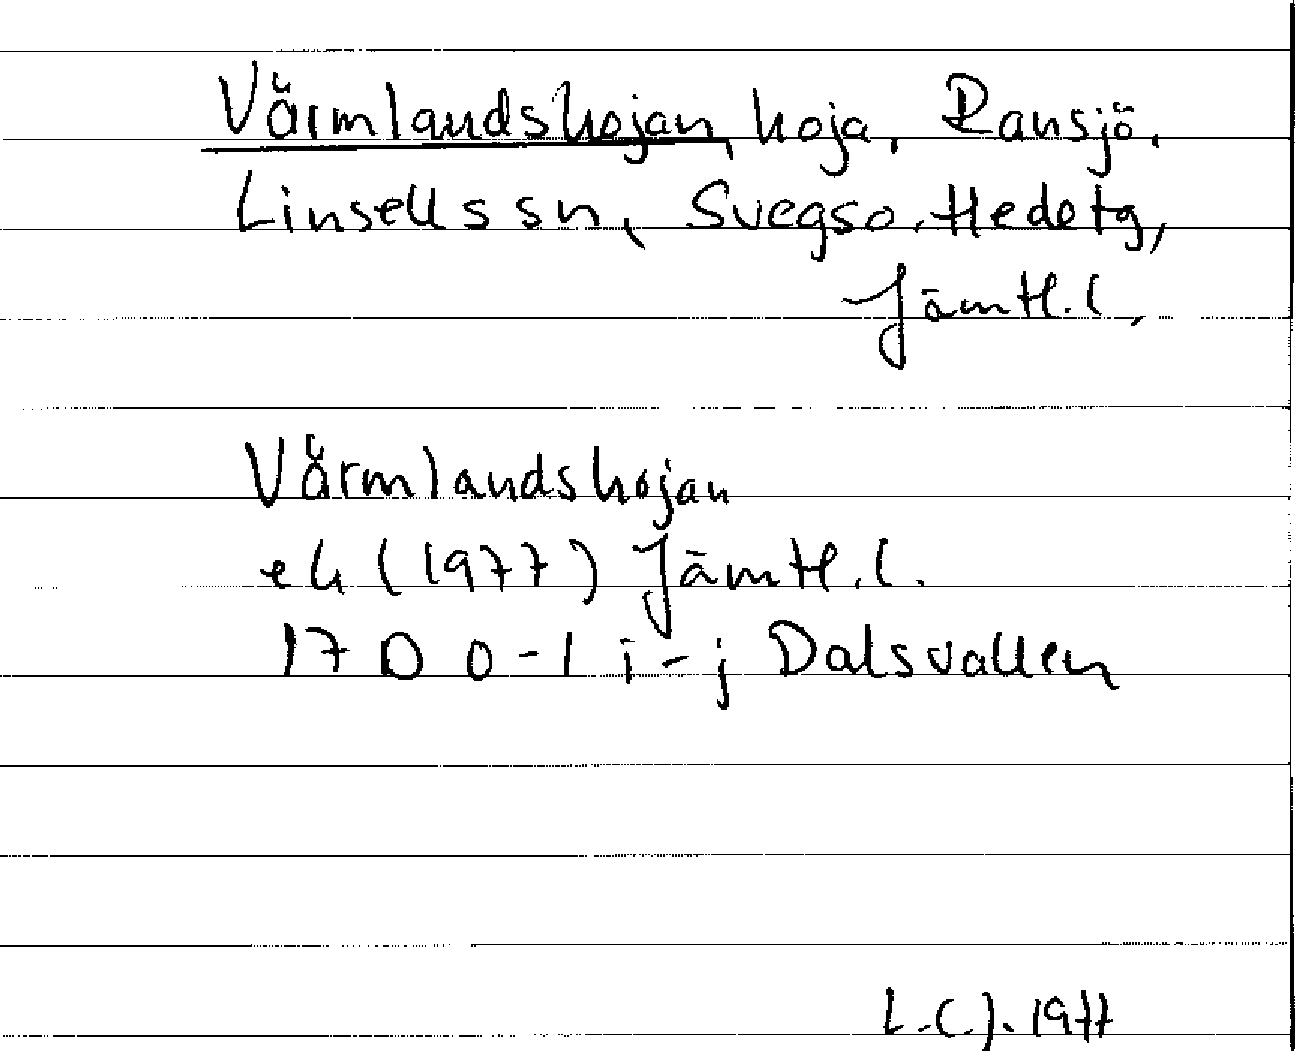 Värmlandshojan, hoja, Ransjö,
Linsells sn, Svegs o. Hede tg,
Jämtl. l,
Värmlandshojan
ek (1977) Jämtl. l.
17 D 0-1 i-j Dalsvallen
L.C.J. 1977